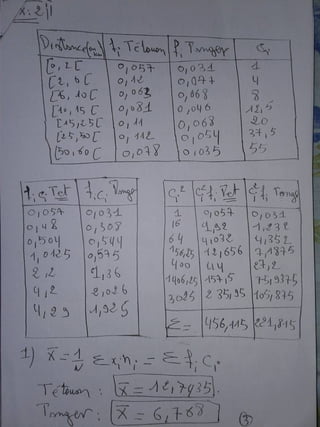 Ex. 2/1
Distance(en km) fi Tétouan fi Tanger Ci
[0, 2[ 0,057 0,031 1
[2, 6[ 0,12 0,077 4
[6, 10[ 0,063 0,068 8
[10, 15[ 0,081 0,046 12,5
[15,25[ 0,11 0,068 20
[25,50[ 0,112 0,054 37,5
[50,60[ 0,078 0,035 55
fi Ci Tet fi Ci Tange
0,057 0,031
0,48 0,308
0,504 0,544
1,0125 0,575
2,2 1,36
4,2 2,026
4,29 1,925
Ci² Ci² fi Tet Ci² fi Tange
1 0,057 0,031
16 1,92 1,232
64 4,032 4,352
156,25 12,656 7,1875
400 44 27,2
1406,25 157,5 75,9375
3025 235,95 105,875
Σ= 456,115 221,815
1) X̄ = 1/N Σ xi ni = Σ fi Ci.
Tétouan : X̄ = 12,7435
Tanger : X̄ = 6,768
(3)